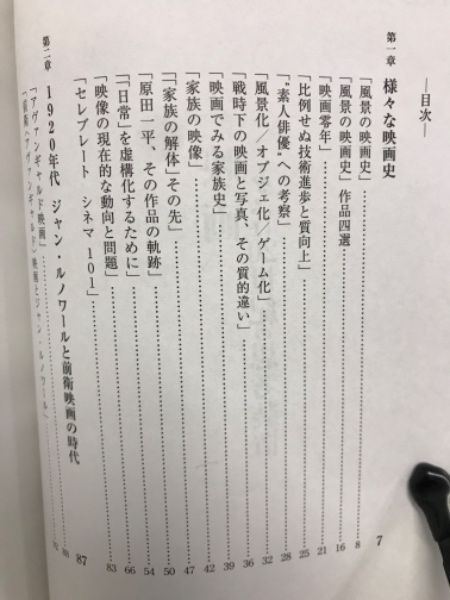 ―目次―
第一章 様々な映画史 7
「風景の映画史」 8
「風景の映画史」作品四選 16
「映画零年」 21
「比例せぬ技術進歩と質向上」 25
"素人俳優"への考察」 28
「風景化／オブジェ化／ゲーム化」 32
「戦時下の映画と写真、その質的違い」 36
「映画でみる家族史」 39
「家族の映像」 42
「「家族の解体」その先」 47
「原田一平、その作品の軌跡」 50
「「日常」を虚構化するために」 54
「映像の現在的な動向と問題」 66
「セレブレート シネマ 101」 83
第二章 1920年代 ジャン・ルノワールと前衛映画の時代 87
「アヴァンギャルド映画」 88
「前衛（アヴァンギャルド）映画とジャン・ルノワール」